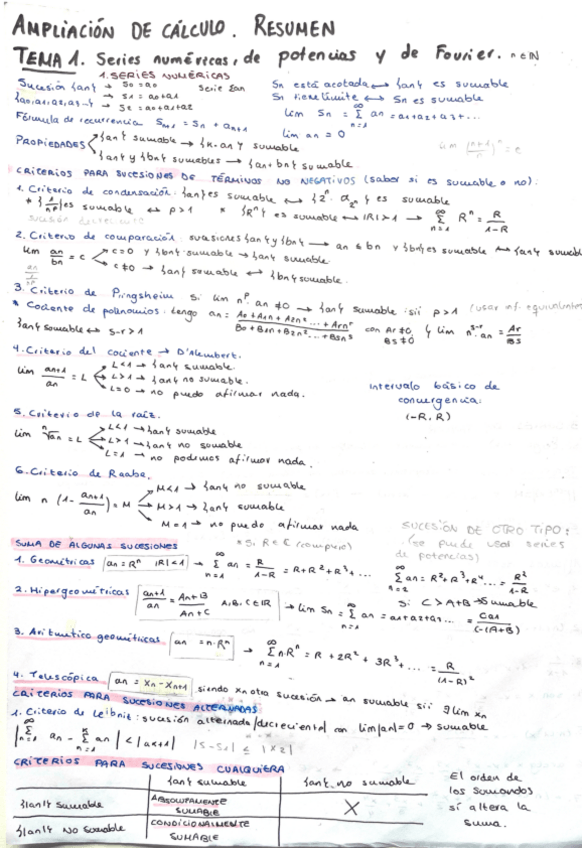 AMPLIACIÓN DE CÁLCULO. RESUMEN
TEMA 1. Series numéricas, de potencias y de Fourier. n ∈ ℕ
1. SERIES NUMÉRICAS
Sucesión {an} → S0 = a0 Serie Σan
{a0, a1, a2, a3...} → S1 = a0 + a1
→ S2 = a0 + a1 + a2
Fórmula de recurrencia Sn+1 = Sn + an+1
Sn está acotada ↔ {an} es sumable
Sn tiene límite ↔ Sn es sumable
lim Sn = Σ an = a1 + a2 + a3 + ...
n=1
lim an = 0
PROPIEDADES
{an} sumable → {k·an} sumable
{an} y {bn} sumables → {an + bn} sumable
lim (n+1/n)^n = e
CRITERIOS PARA SUCESIONES DE TÉRMINOS NO NEGATIVOS (saber si es sumable o no):
1. Criterio de condensación: {an} es sumable ↔ {2^n · a_2^n} es sumable
* {1/n^p} es sumable ↔ p > 1 * {R^n} es sumable ↔ |R| > 1 → Σ R^n = R/1-R
2. Criterio de comparación: sucesiones {an} y {bn} → an ≤ bn y {bn} es sumable → {an} sumable
lim an/bn = c
c = 0 y {bn} sumable → {an} sumable
c ≠ 0 → {an} sumable ↔ {bn} sumable.
3. Criterio de Pringsheim si lim n^p · an ≠ 0 → {an} sumable sii p > 1 (usar inf. equivalentes)
* Cociente de polinomios: tengo an = A0 + A1n + A2n² ... + Arn^r / B0 + B1n + B2n² ... + Bsn^s con Ar ≠ 0, Bs ≠ 0 y lim n^s-r · an = Ar/Bs
{an} sumable ↔ s-r > 1
4. Criterio del cociente → D'Alembert.
lim an+1/an = L
L < 1 → {an} sumable.
L > 1 → {an} no sumable.
L = 0 → no puedo afirmar nada.
Intervalo básico de
convergencia:
(-R, R)
5. Criterio de la raíz.
lim ⁿ√an = L
L < 1 → {an} sumable
L > 1 → {an} no sumable
L = 1 → no podemos afirmar nada.
6. Criterio de Raabe.
lim n (1 - an+1/an) = M
M < 1 → {an} no sumable
M > 1 → {an} sumable
M = 1 → no puedo afirmar nada
SUCESIÓN DE OTRO TIPO:
(se puede usar series
de potencias)
SUMA DE ALGUNAS SUCESIONES * Si R ∈ ℂ (complejo)
1. Geométricas an = R^n |R| < 1 Σ an = R/1-R = R + R² + R³ + ... Σ an = R² + R³ + R⁴ ... = R²/1-R
n=1 n=2
2. Hipergeométricas an+1/an = An+B/An+C A, B, C ∈ ℝ → lim Sn = Σ an = a1 + a2 + a3 ... = Ca1/C-(A+B)
si C > A+B → Sumable
3. Aritmético geométricas an = n·R^n → Σ n·R^n = R + 2R² + 3R³ + ... = R/(1-R)²
n=1
4. Telescópica an = xn - xn+1 siendo xn otra sucesión → an sumable sii ∃ lim xn
CRITERIOS PARA SUCESIONES ALTERNADAS
1. Criterio de Leibnit: sucesión alternada |decreciente| con lim|an| = 0 → sumable
|Σ an - Σ an| < |ak+1|
CRITERIOS PARA SUCESIONES CUALQUIERA
{an} sumable {an} no sumable
{|an|} sumable ABSOLUTAMENTE SUMABLE X
{|an|} No sumable CONDICIONALMENTE SUMABLE
El orden de
los sumandos
sí altera la
suma.